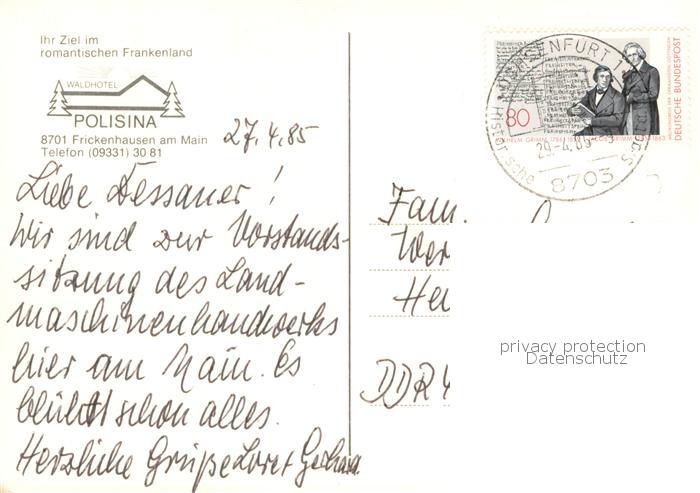 Ihr Ziel im
romantischen Frankenland
WALDHOTEL
POLISINA
8701 Frickenhausen am Main
Telefon (09331) 30 81
27.4.85
Liebe Dessauer!
Wir sind zur Vorstands-
sitzung des Land-
maschinenhandwerks
hier am Main. Es
blüht schon alles.
Herzliche Grüße Lore + Gerhard
OCHSENFURT 1
8703
80
DEUTSCHE BUNDESPOST
Fam.
Wer
He
DDR 4
privacy protection
Datenschutz